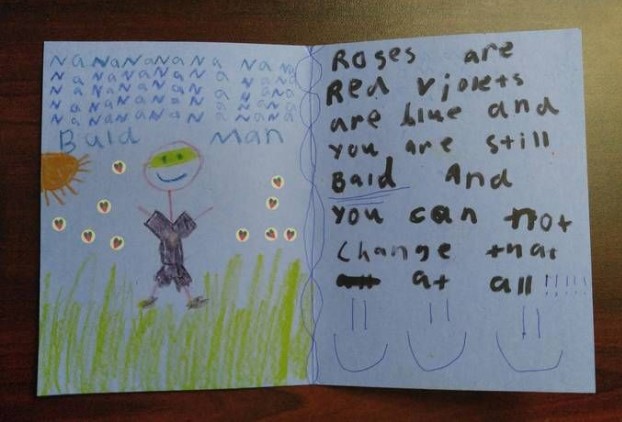 Na NaNaNaNa Na Na
Na NaNaNa Na Na Na
Na NaNaNa Na Na Na
Na NaNaNa Na Na Na
Na NaNaNa Na Na Na
Bald Man
Roses are
Red violets
are blue and
you are still
Bald And
you can not
change that
at all !!!!!